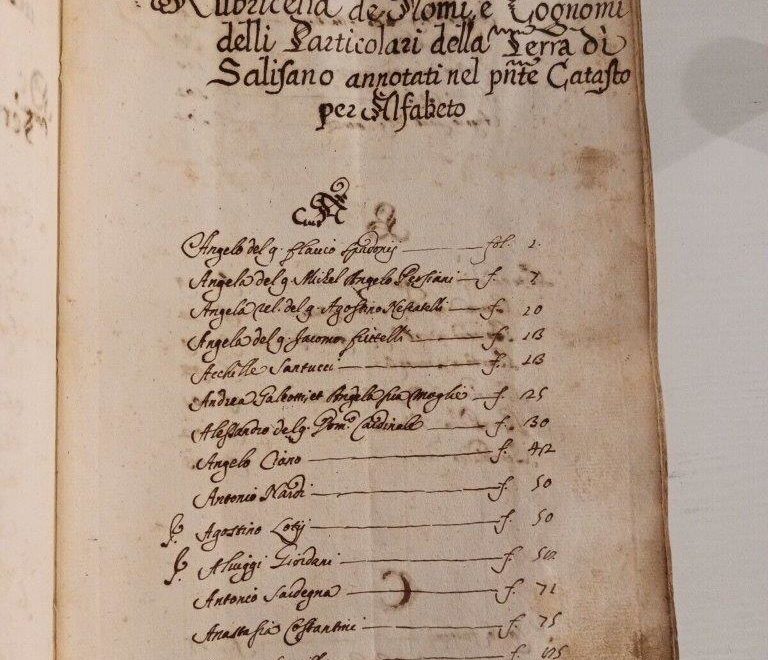 Rubricella de Nomi, e Cognomi
delli Particolari della Terra di
Salisano annotati nel pnte Catasto
per Alfabeto
A
Angelo del q. Flavio fol. 1.
Angela del q. Michel Angelo Persiani f. 7
Angela rel. del q. Agostino f. 10
Angela del q. Jacomo f. 18
Acchille Santucci f. 18
Andrea Galeotti et Angela sua Moglie f. 25
Alessandro del q. Dom.co Cardinale f. 30
Angelo Ciano f. 42
Antonio Nardi f. 50
Agostino Lotij f. 50
Aluiggi Giordani f.
Antonio Sardegna f. 71
Anastasia Costantini f. 75
f. 125